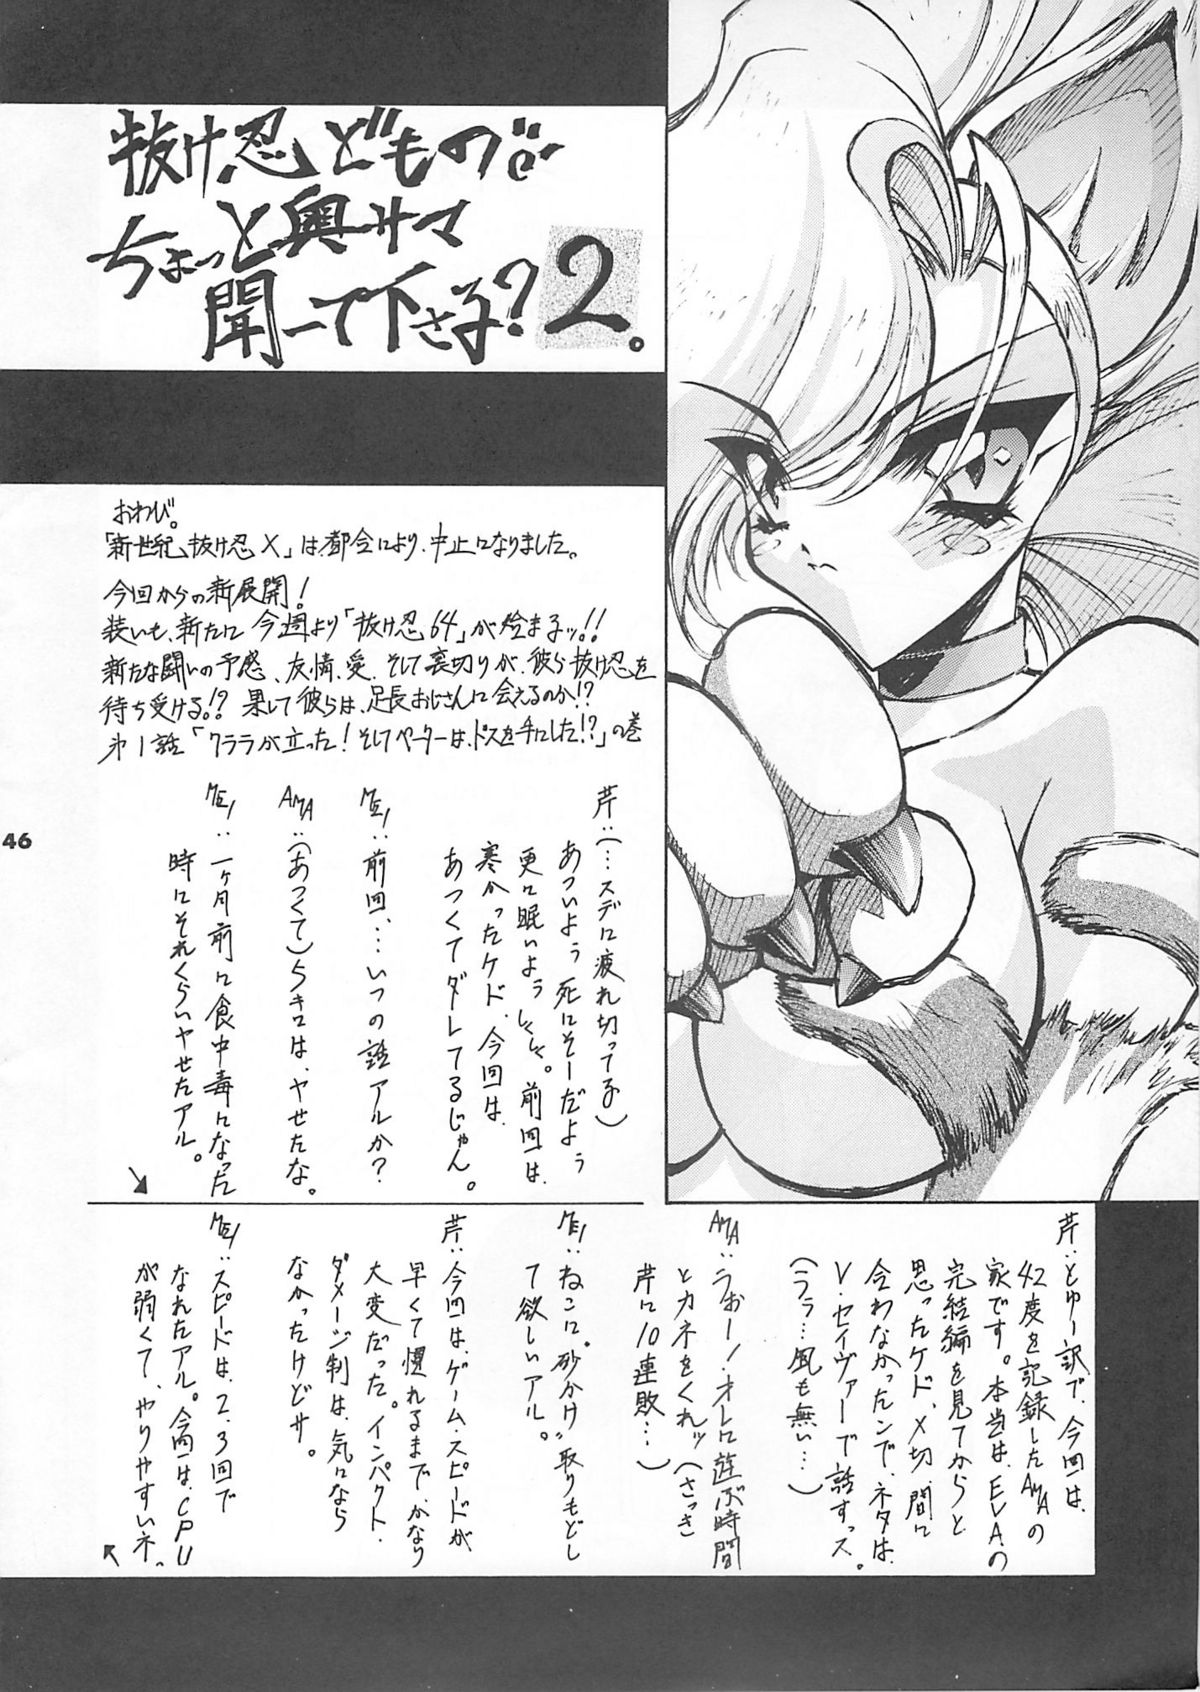 抜け忍どもの
ちょっと奥サマ
聞いて下さる?2。
おわび。
「新世紀抜け忍X」は、都合により、中止になりました。
今回からの新展開!
装いも、新たに今週より「抜け忍64」が始まるッ!!
新たな闘いの予感、友情、愛、そして裏切りが、彼ら抜け忍を
待ち受ける!? 果して彼らは、足長おじさんに会えるのか!?
第1話「クララが立った!そしてペーターは、ドスを手にした!?」の巻
芹:(…スデに疲れ切ってる)
あついよう 死にそーだよう
更に眠いよう しくしく。前回は、
寒かったケド、今回は、
あつくてダレてるじゃん。
MEI:前回、…いつの話アルか?
AMA:(あつくて)5キロは、ヤせたな。
MEI:一ヶ月前に食中毒になった
時にそれくらいヤせたアル。
芹:とゆー訳で、今回は、
42度を記録したAMAの
家です。本当は、EVAの
完結編を見てからと
思ったケド、〆切、間に
合わなかったンで、ネタは、
V・セイヴァーで話すっス。
(ララ…風も無い…)
AMA:うおー!オレに遊ぶ時間
とカネをくれッ(さっき
芹に10連敗…)
MEI:ねこに。砂かけ"取りもどし
て欲しいアル。
芹:今回は、ゲーム・スピードが、
早くて慣れるまでかなり
大変だった。インパクト・
ダメージ制は、気になら
なかったけどサ。
MEI:スピードは、2、3回で
なれたアル。今回は、CPU
が弱くて、やりやすいネ。
46